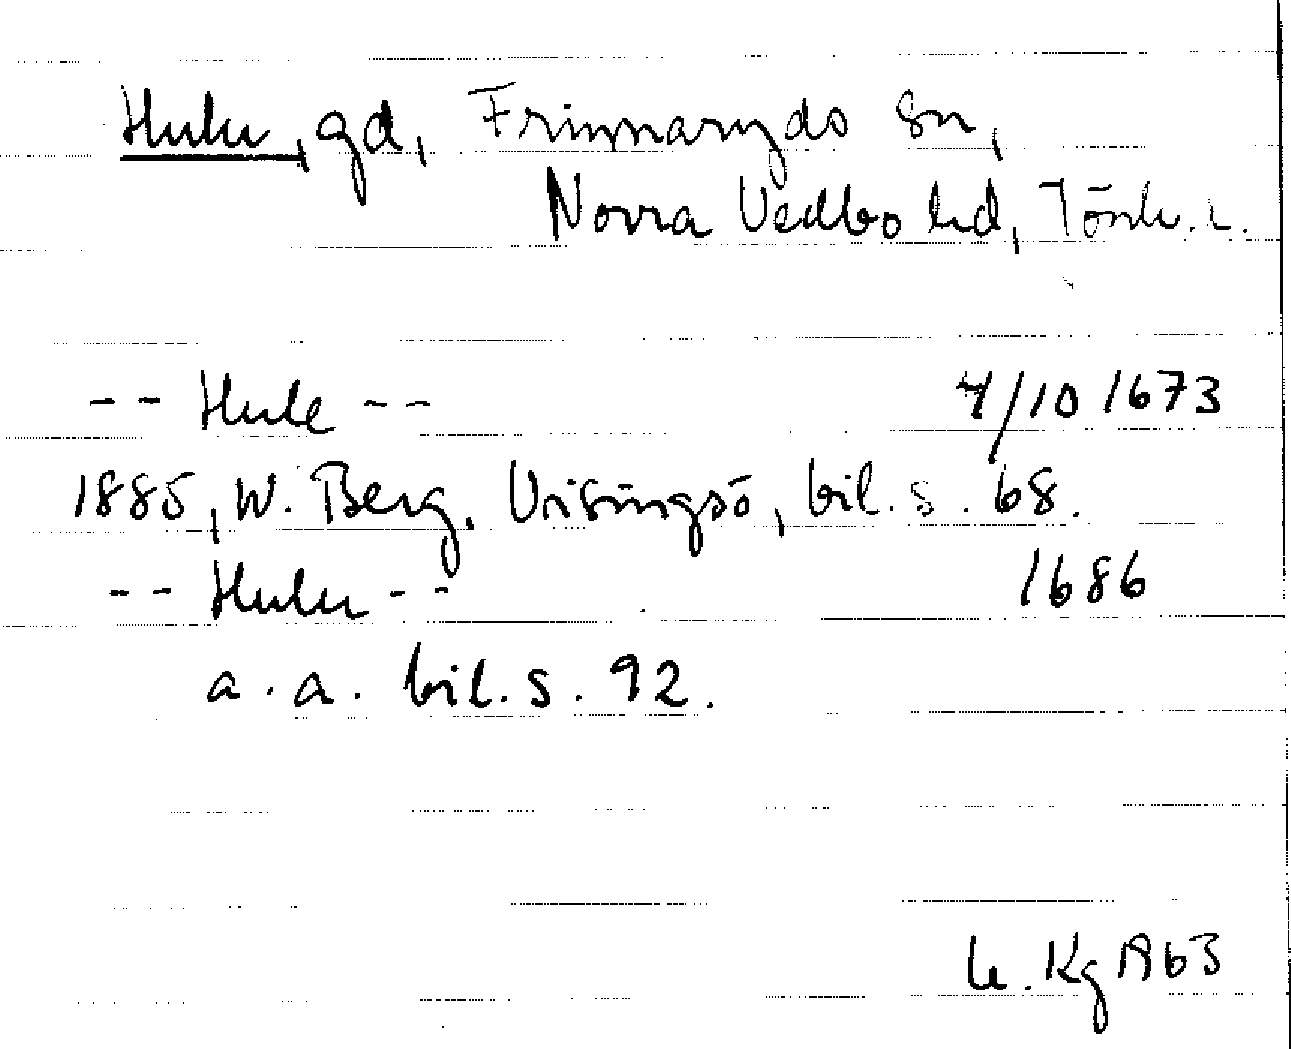 Hulu, gd, Frinnaryds sn,
Norra Vedbo hd, Jönk. l.
-- Hule -- 4/10 1673
1885, W. Berg. Visingsö, bil. s. 68.
-- Hulu -- 1686
a. a. bil. s. 92.
Kg 1963